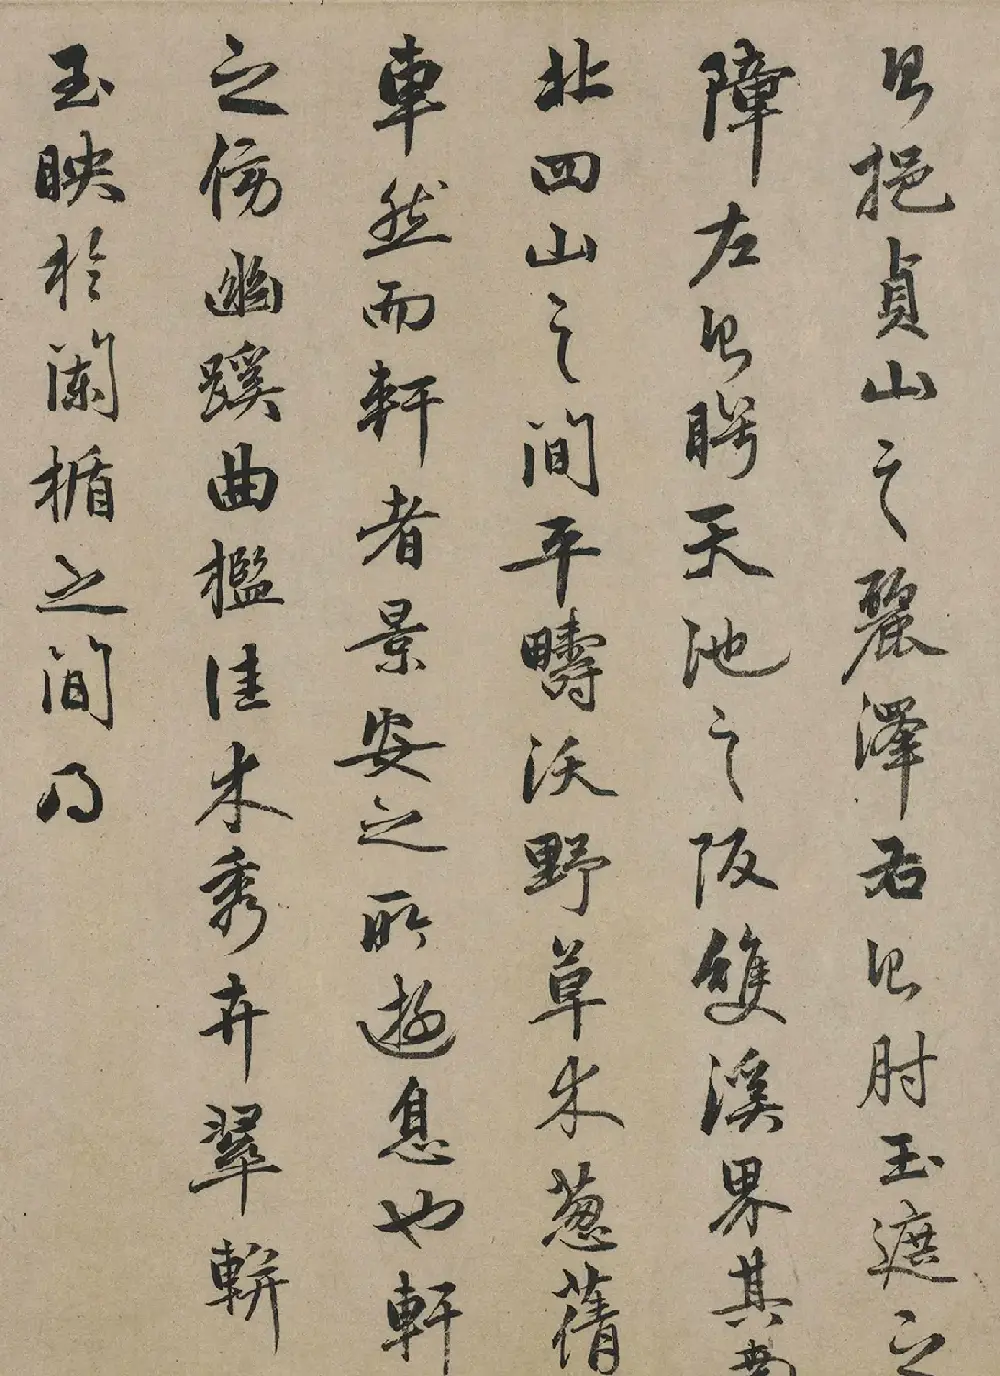 以挹貞山之麗澤右以肘玉遮之
障左以眄天池之阪雙溪界其南
北四山之間平疇沃野草木蔥蒨
車然而軒者景安之所遊息也軒
之傍幽蹊曲檻佳木秀卉翠軿
玉映於闌楯之間乃